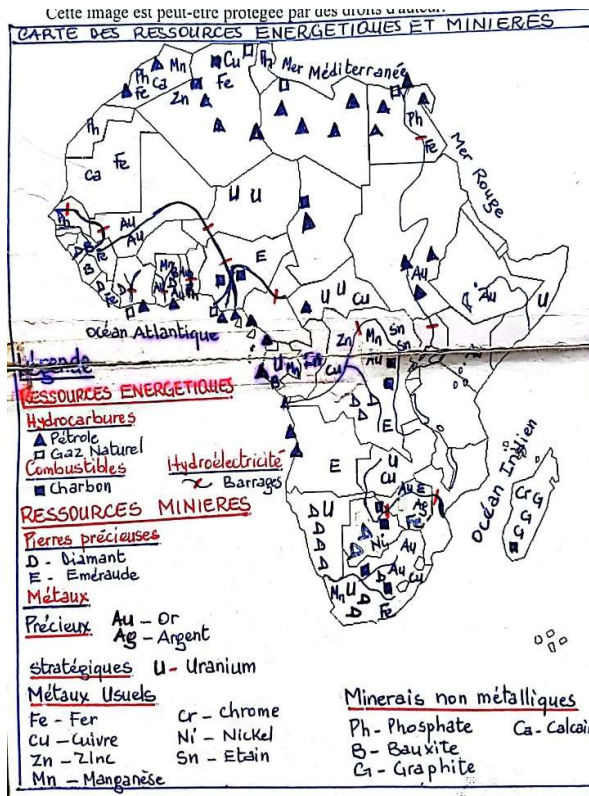 Cette image est peut-etre protegee par des droits d'auteur.
CARTE DES RESSOURCES ENERGETIQUES ET MINIERES
Mer Méditerranée
Mer Rouge
Océan Atlantique
Océan Indien
Ph Mn Cu Ph
Fe Ca Zn Fe
Ph
Ca Fe
Ph
Fe
U U
Ph
Au
Au
E
Au
Au
U
U U Cu
Zn Mn Sn
Au Sn
U Mn
Cu
E
E
U
Cu
Au E
Ag
Fe
D U
D
D
D
Ni
Au
Au
Cu
Mn U
D
Fe
Cr G
G
G
RESSOURCES ENERGETIQUES
Hydrocarbures
Pétrole
Gaz Naturel
Combustibles
Charbon
Hydroélectricité
Barrages
RESSOURCES MINIERES
Pierres précieuses
D - Diamant
E - Eméraude
Métaux
Précieux Au - Or
Ag - Argent
stratégiques U - Uranium
Métaux Usuels
Fe - Fer
Cu - Cuivre
Zn - Zinc
Mn - Manganèse
Cr - Chrome
Ni - Nickel
Sn - Etain
Minerais non métalliques
Ph - Phosphate
B - Bauxite
G - Graphite
Ca - Calcai